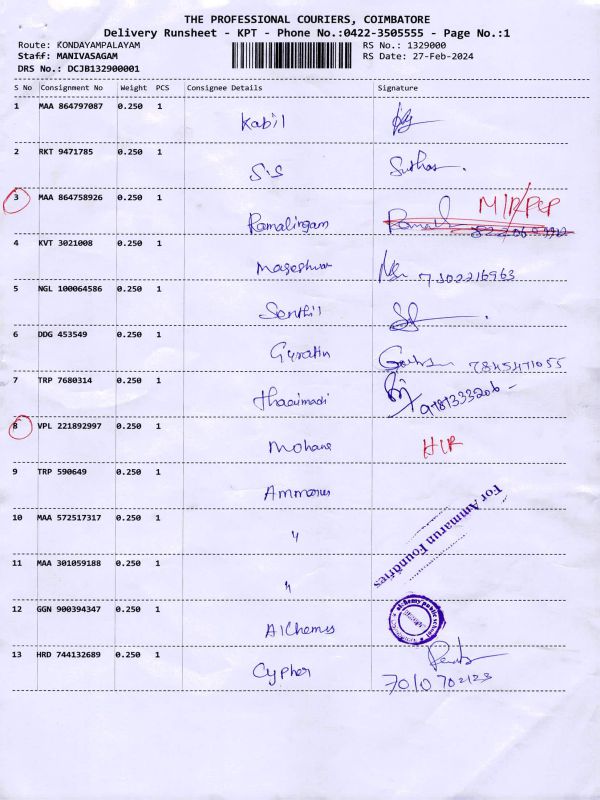 THE PROFESSIONAL COURIERS, COIMBATORE
Delivery Runsheet - KPT - Phone No.:0422-3505555 - Page No.:1
Route: KONDAYAMPALAYAM RS No.: 1329000
Staff: MANIVASAGAM RS Date: 27-Feb-2024
DRS No.: DCJB132900001
S No Consignment No Weight PCS Consignee Details Signature
1 MAA 864797087 0.250 1 Kabil
2 RKT 9471785 0.250 1 S.S Suthas.
3 MAA 864758926 0.250 1 Ramalingam
4 KVT 3021008 0.250 1 Mageshwar 7302216963
5 NGL 100064586 0.250 1 Senthil
6 DDG 453549 0.250 1 7845471055
7 TRP 7680314 0.250 1 9787333206
8 VPL 221892997 0.250 1 Mohana
9 TRP 590649 0.250 1
10 MAA 572517317 0.250 1 "
11 MAA 301059188 0.250 1 "
For Ammarun Foundries
12 GGN 900394347 0.250 1 Alchemy
alchemy public school
13 HRD 744132689 0.250 1 Cypher
7010702123